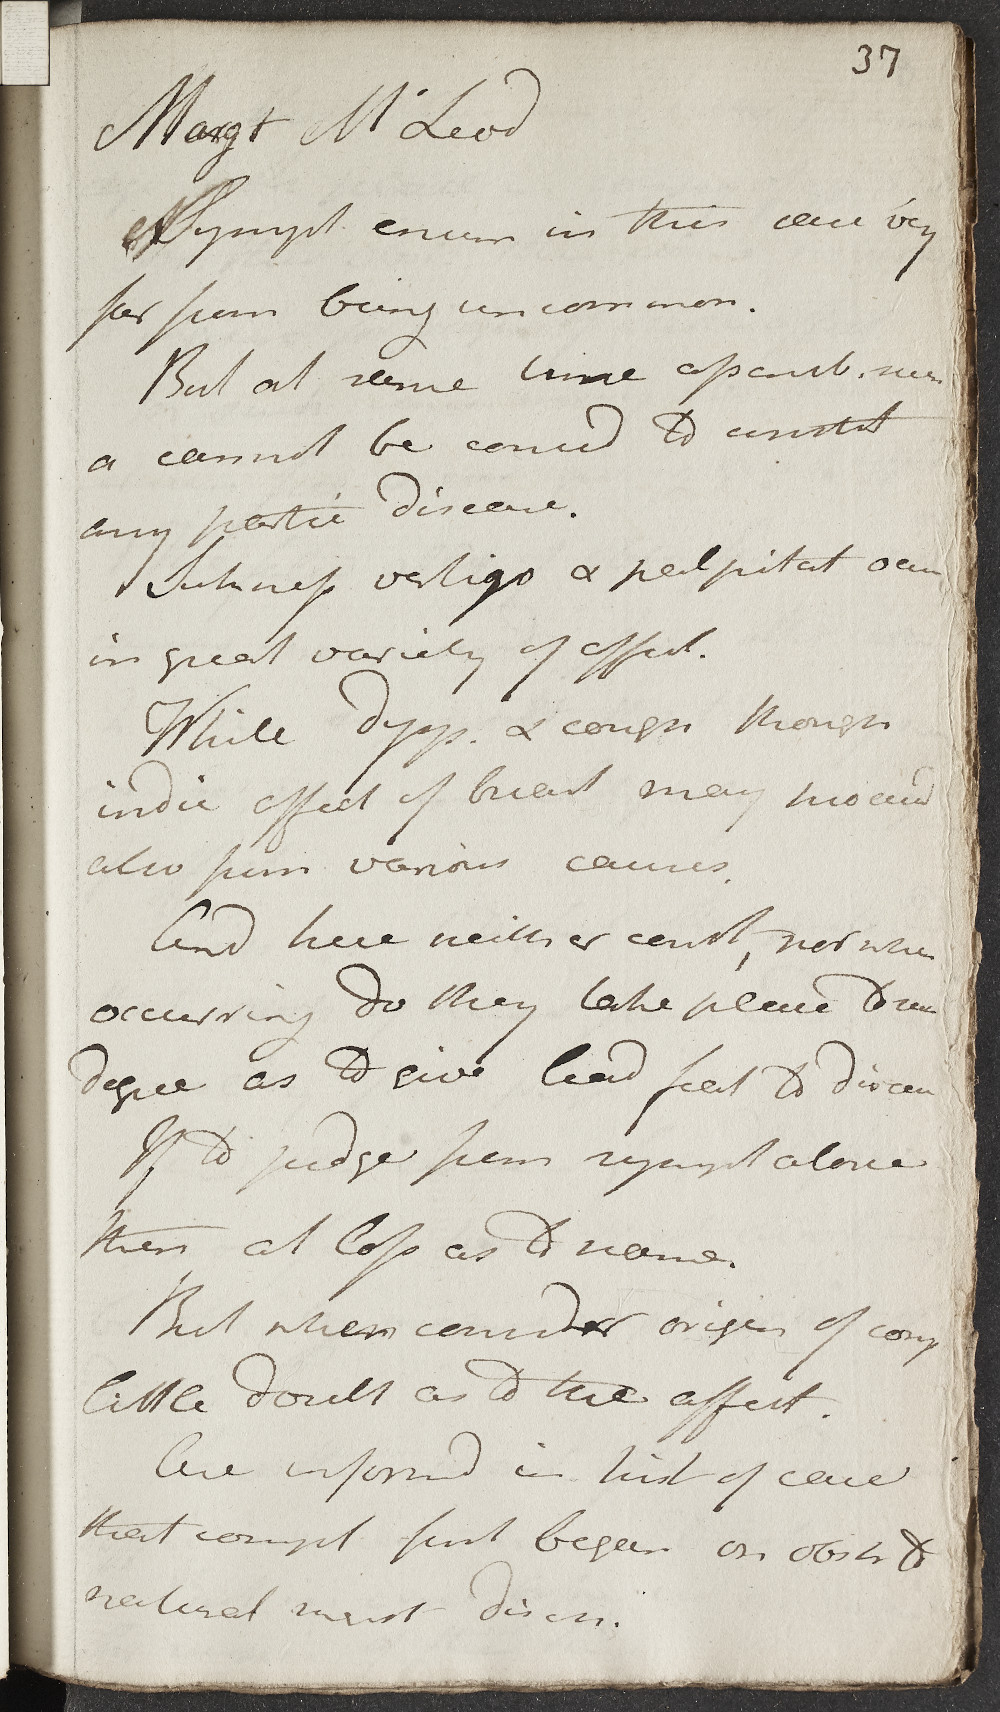 37
Margt McLeod
Sympt enum in this case very
far from being uncommon.
But at same time
a cannot be consid to constit
any partic disease.
Sickness vertigo & palpitat occur
in great variety of affect.
While dysp. & cough though
indic affect of breast may proceed
also from various causes.
And here neither const, nor when
occurring do they take place to such
degree as to give lead feat to disease
If to judge from sympt alone
then at loss as to name.
But when consider origin of comp
little doubt as to the affect.
Are informd in hist of case
that compt first began on obstr to
natural menst disch.